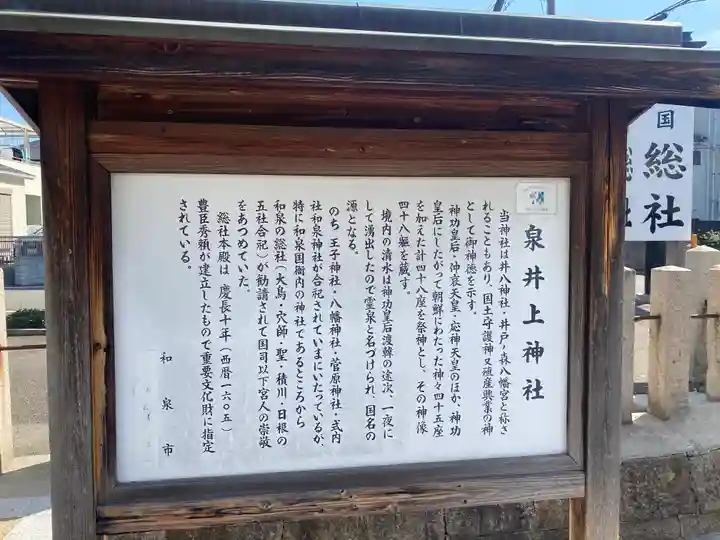 泉井上神社
当神社は井八神社・井戸ノ森八幡宮と称さ
れることもあり、国土守護神又殖産興業の神
として御神徳を示す。
神功皇后・仲哀天皇・応神天皇のほか、神功
皇后にしたがって朝鮮にわたった神々四十五座
を加えた計四十八座を祭神とし、その神像
四十八躯を蔵す。
境内の清水は神功皇后渡韓の途次、一夜に
して湧出したので霊泉と名づけられ、国名の
源となる。
のち、王子神社・八幡神社・菅原神社・式内
社和泉神社が合祀されていまにいたっているが、
特に和泉国衙内の神社であるところから
和泉の総社（大鳥・穴師・聖・積川・日根の
五社合祀）が勧請されて国司以下宮人の崇敬
をあつめていた。
総社本殿は、慶長十年（西暦一六〇五）
豊臣秀頼が建立したもので重要文化財に指定
されている。
和泉市
国総社